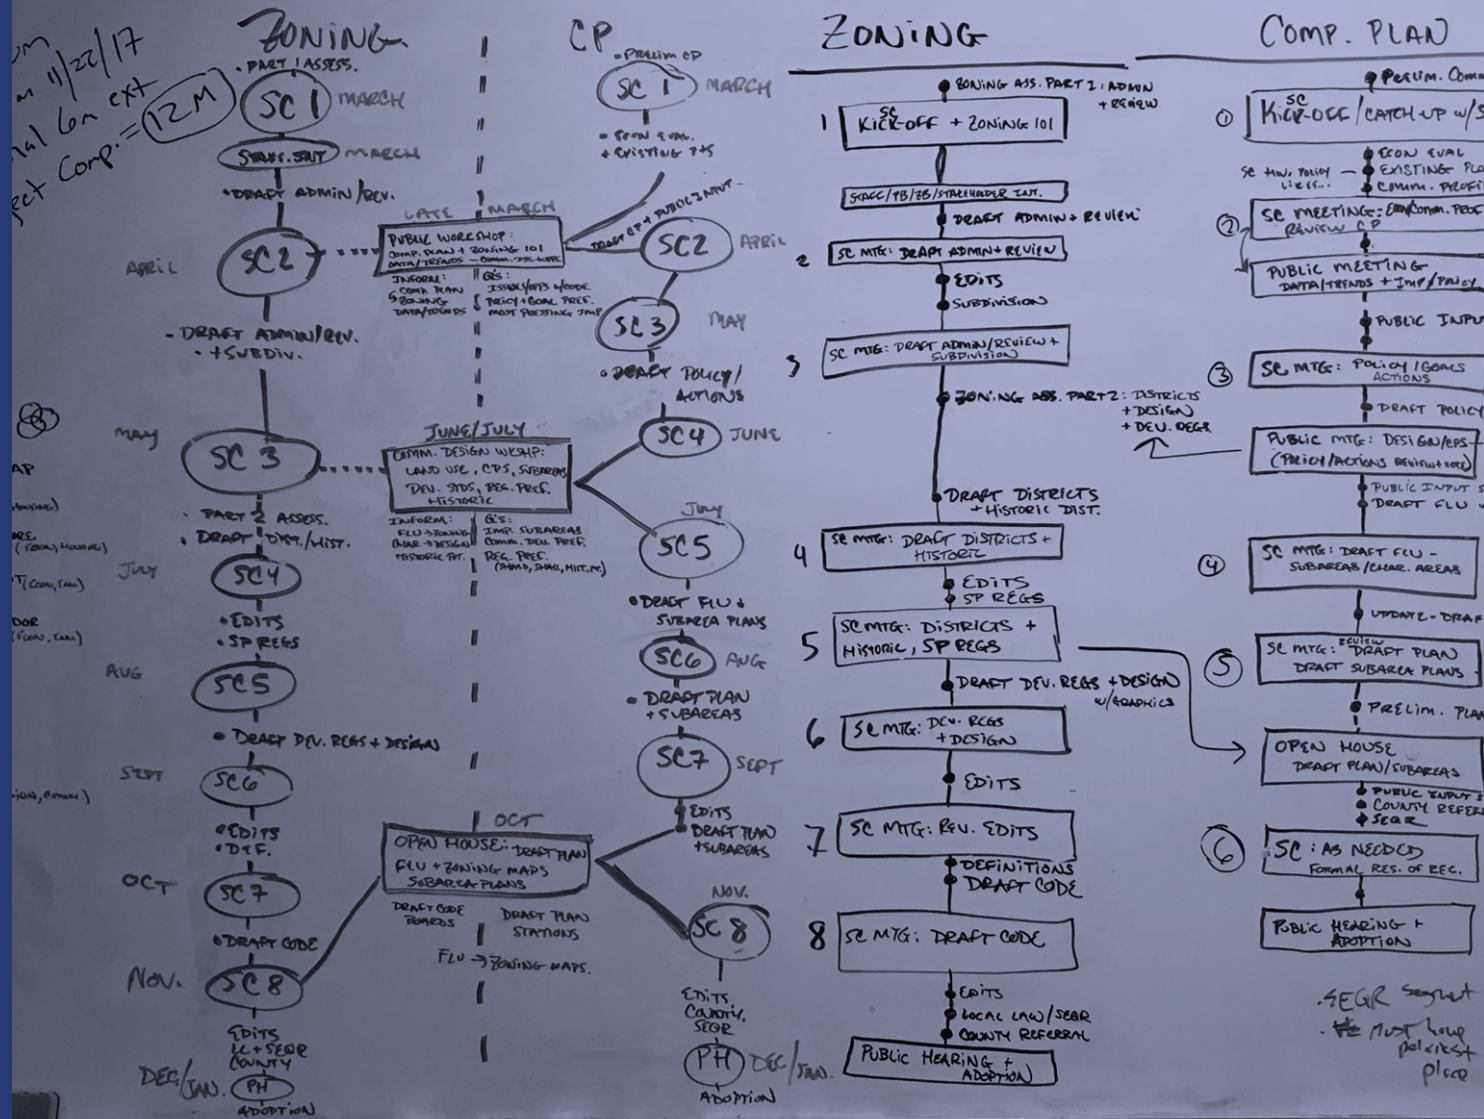 11/22/17
6m ext
Comp. = 12M
ZONING
• PART 1 ASSESS.
SC 1 MARCH
MARCH
• DRAFT ADMIN/REV.
APRIL
SC2
- DRAFT ADMIN/REV.
- + SUBDIV.
MAY
SC 3
• PART 2 ASSESS.
• DRAFT DIST./HIST.
JULY
SC4
• EDITS
• SP REGS
AUG
SC5
• DRAFT DEV. REGS + DESIGN
SEPT
SC6
• EDITS
• DEF.
OCT
SC7
• DRAFT CODE
NOV.
SC8
EDITS
LL + SEQR
COUNTY
DEC/JAN.
PH
ADOPTION
LATE MARCH
PUBLIC WORKSHOP:
COMP. PLAN + ZONING 101
DATA/TRENDS -
INFORM:
COMP PLAN
ZONING
DATA/TRENDS
Q's:
ISSUES/OPPS W/CODE
POLICY + GOAL PREF.
MOST PRESSING IMP
JUNE/JULY
COMM. DESIGN WKSHP:
LAND USE, CPS, SUBAREAS
DEV. STDS, REG. PREF.
+ HISTORIC
INFORM:
FLU → ZONING
CHAR → DESIGN
HISTORIC
Q's:
IMP. SUBAREAS
COMM. DEV. PREF.
REG. PREF.
(SHOULD, SHALL, MIGHT, etc.)
OCT
OPEN HOUSE: DRAFT PLAN
FLU + ZONING MAPS
SUBAREA PLANS
DRAFT CODE
BOARDS
DRAFT PLAN
STATIONS
FLU → ZONING MAPS.
CP
• PRELIM CP
SC 1 MARCH
• ECON EVAL.
+ EXISTING
DRAFT CP + PUBLIC INPUT
SC2 APRIL
SC3 MAY
• DRAFT POLICY/
ACTIONS
SC4 JUNE
JULY
SC5
• DRAFT FLU +
SUBAREA PLANS
SC6 AUG
• DRAFT PLAN
+ SUBAREAS
SC7 SEPT
• EDITS
• DRAFT PLAN
+ SUBAREAS
NOV.
SC 8
EDITS
COUNTY.
SEQR
PH DEC/JAN.
ADOPTION
ZONING
ZONING ASS. PART 1: ADMIN
+ REVIEW
1 SC KICK-OFF + ZONING 101
STAFF/PB/ZB/STAKEHOLDER INT.
DRAFT ADMIN + REVIEW
2 SC MTG: DRAFT ADMIN + REVIEW
EDITS
SUBDIVISION
3 SC MTG: DRAFT ADMIN/REVIEW +
SUBDIVISION
ZONING ASS. PART 2: DISTRICTS
+ DESIGN
+ DEV. REGS
DRAFT DISTRICTS
+ HISTORIC DIST.
4 SC MTG: DRAFT DISTRICTS +
HISTORIC
EDITS
SP REGS
5 SC MTG: DISTRICTS +
HISTORIC, SP REGS
DRAFT DEV. REGS + DESIGN
W/GRAPHICS
6 SC MTG: DEV. REGS
+ DESIGN
EDITS
7 SC MTG: REV. EDITS
DEFINITIONS
DRAFT CODE
8 SC MTG: DRAFT CODE
EDITS
LOCAL LAW/SEQR
COUNTY REFERRAL
PUBLIC HEARING +
ADOPTION
COMP. PLAN
PRELIM. COMM
① SC KICK-OFF/CATCH-UP W/S
ECON EVAL
EXISTING PLA
COMM. PROFI
② SC MEETING: ECON/COMM. PROF
REVIEW CP
PUBLIC MEETING
DATA/TRENDS + IMP/POLICY
PUBLIC INPUT
③ SC MTG: POLICY/GOALS
ACTIONS
DRAFT POLICY
PUBLIC MTG: DESIGN/CPS
(POLICY/ACTIONS REVIEW + VOTE)
PUBLIC INPUT S
DRAFT FLU
④ SC MTG: DRAFT FLU -
SUBAREAS/CHAR. AREAS
UPDATE - DRAF
⑤ SC MTG: REVIEW DRAFT PLAN
DRAFT SUBAREA PLANS
PRELIM. PLAN
OPEN HOUSE
DRAFT PLAN/SUBAREAS
PUBLIC INPUT S
COUNTY REFER
SEQR
⑥ SC: AS NEEDED
FORMAL RES. OF REC.
PUBLIC HEARING +
ADOPTION
• SEQR Segment
• Must have
place